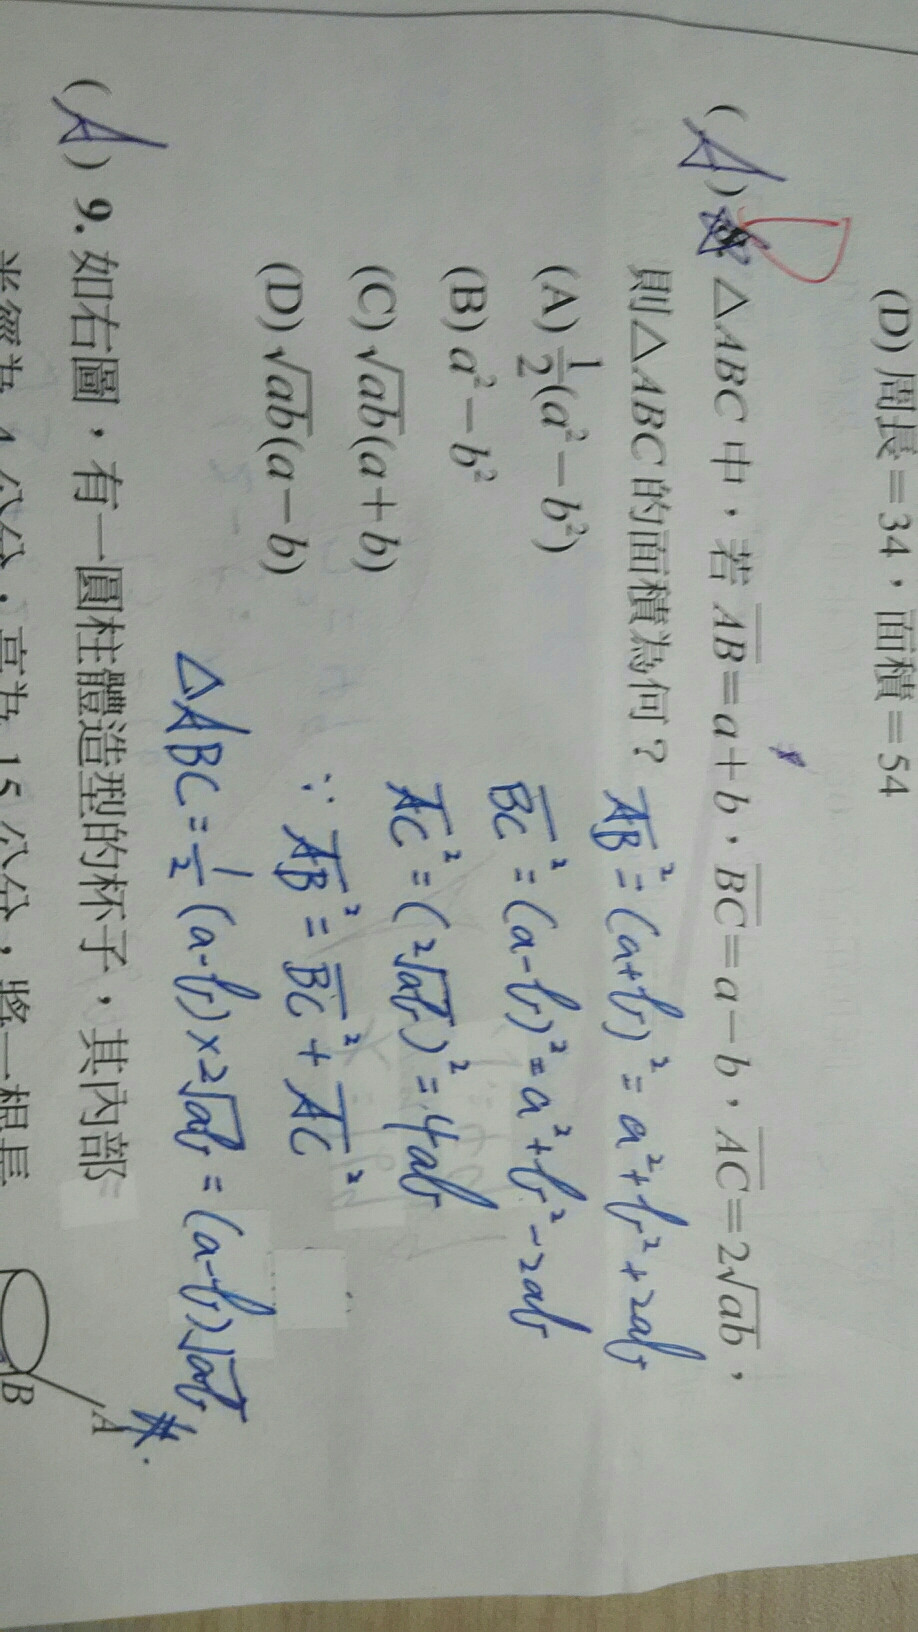 (D) 周長=34，面積=54
(A) D
△ABC 中，若 AB=a+b，BC=a-b，AC=2√ab，
則△ABC 的面積為何？
(A) 1/2(a²-b²)
(B) a²-b²
(C) √ab(a+b)
(D) √ab(a-b)
AB²=(a+b)²=a²+b²+2ab
BC²=(a-b)²=a²+b²-2ab
AC²=(2√ab)²=4ab
∵ AB²=BC²+AC²
△ABC=1/2(a-b)×2√ab=(a-b)√ab #.
(A) 9. 如右圖，有一圓柱體造型的杯子，其內部
半徑為 4 公分，高為 15 公分，將一根長
A
B